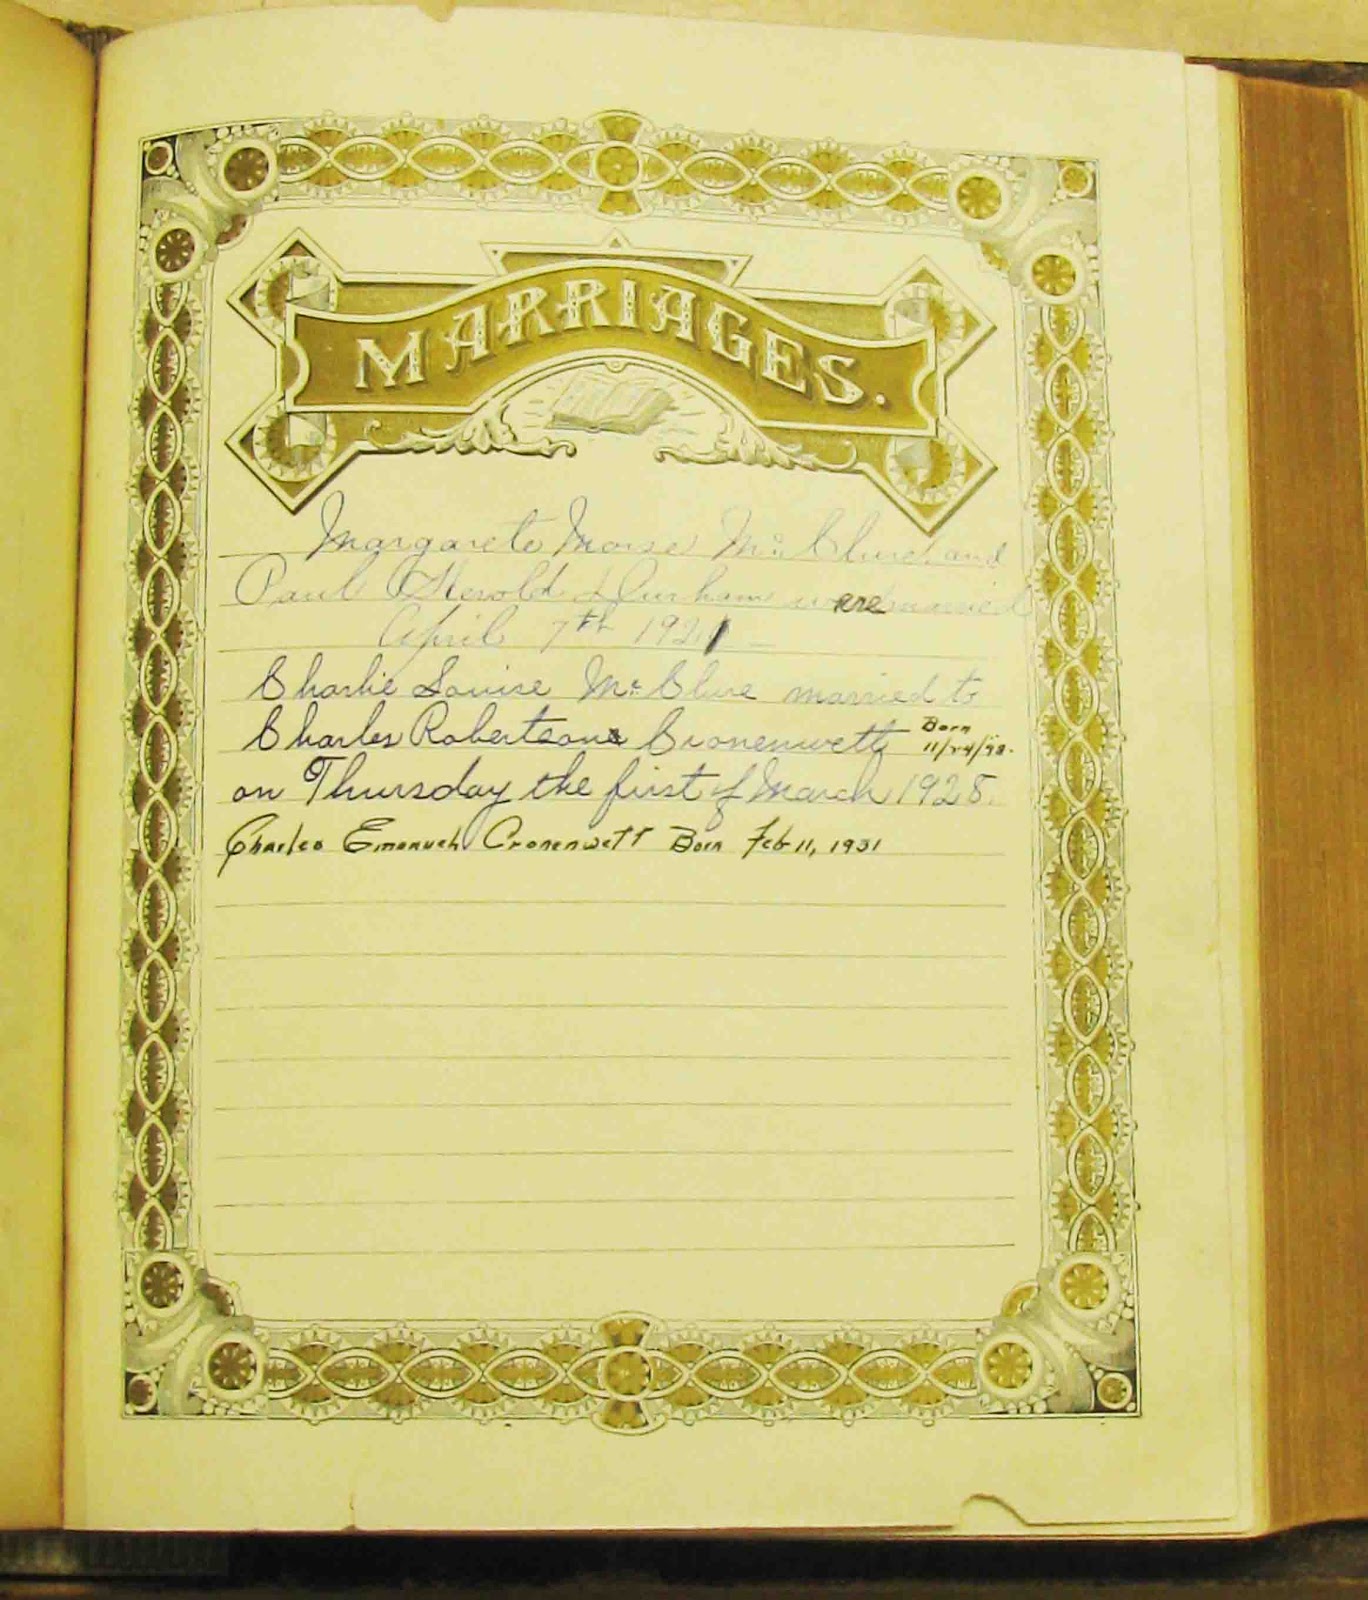 MARRIAGES.
Margarete Morse McClure and
Paul Herold Durham were married
April 7th 1921 -
Charlie Louise McClure married to
Charles Robertson Cronenwett Born 11/24/98.
on Thursday the first of March 1928.
Charles Emanuel Cronenwett Born Feb 11, 1931